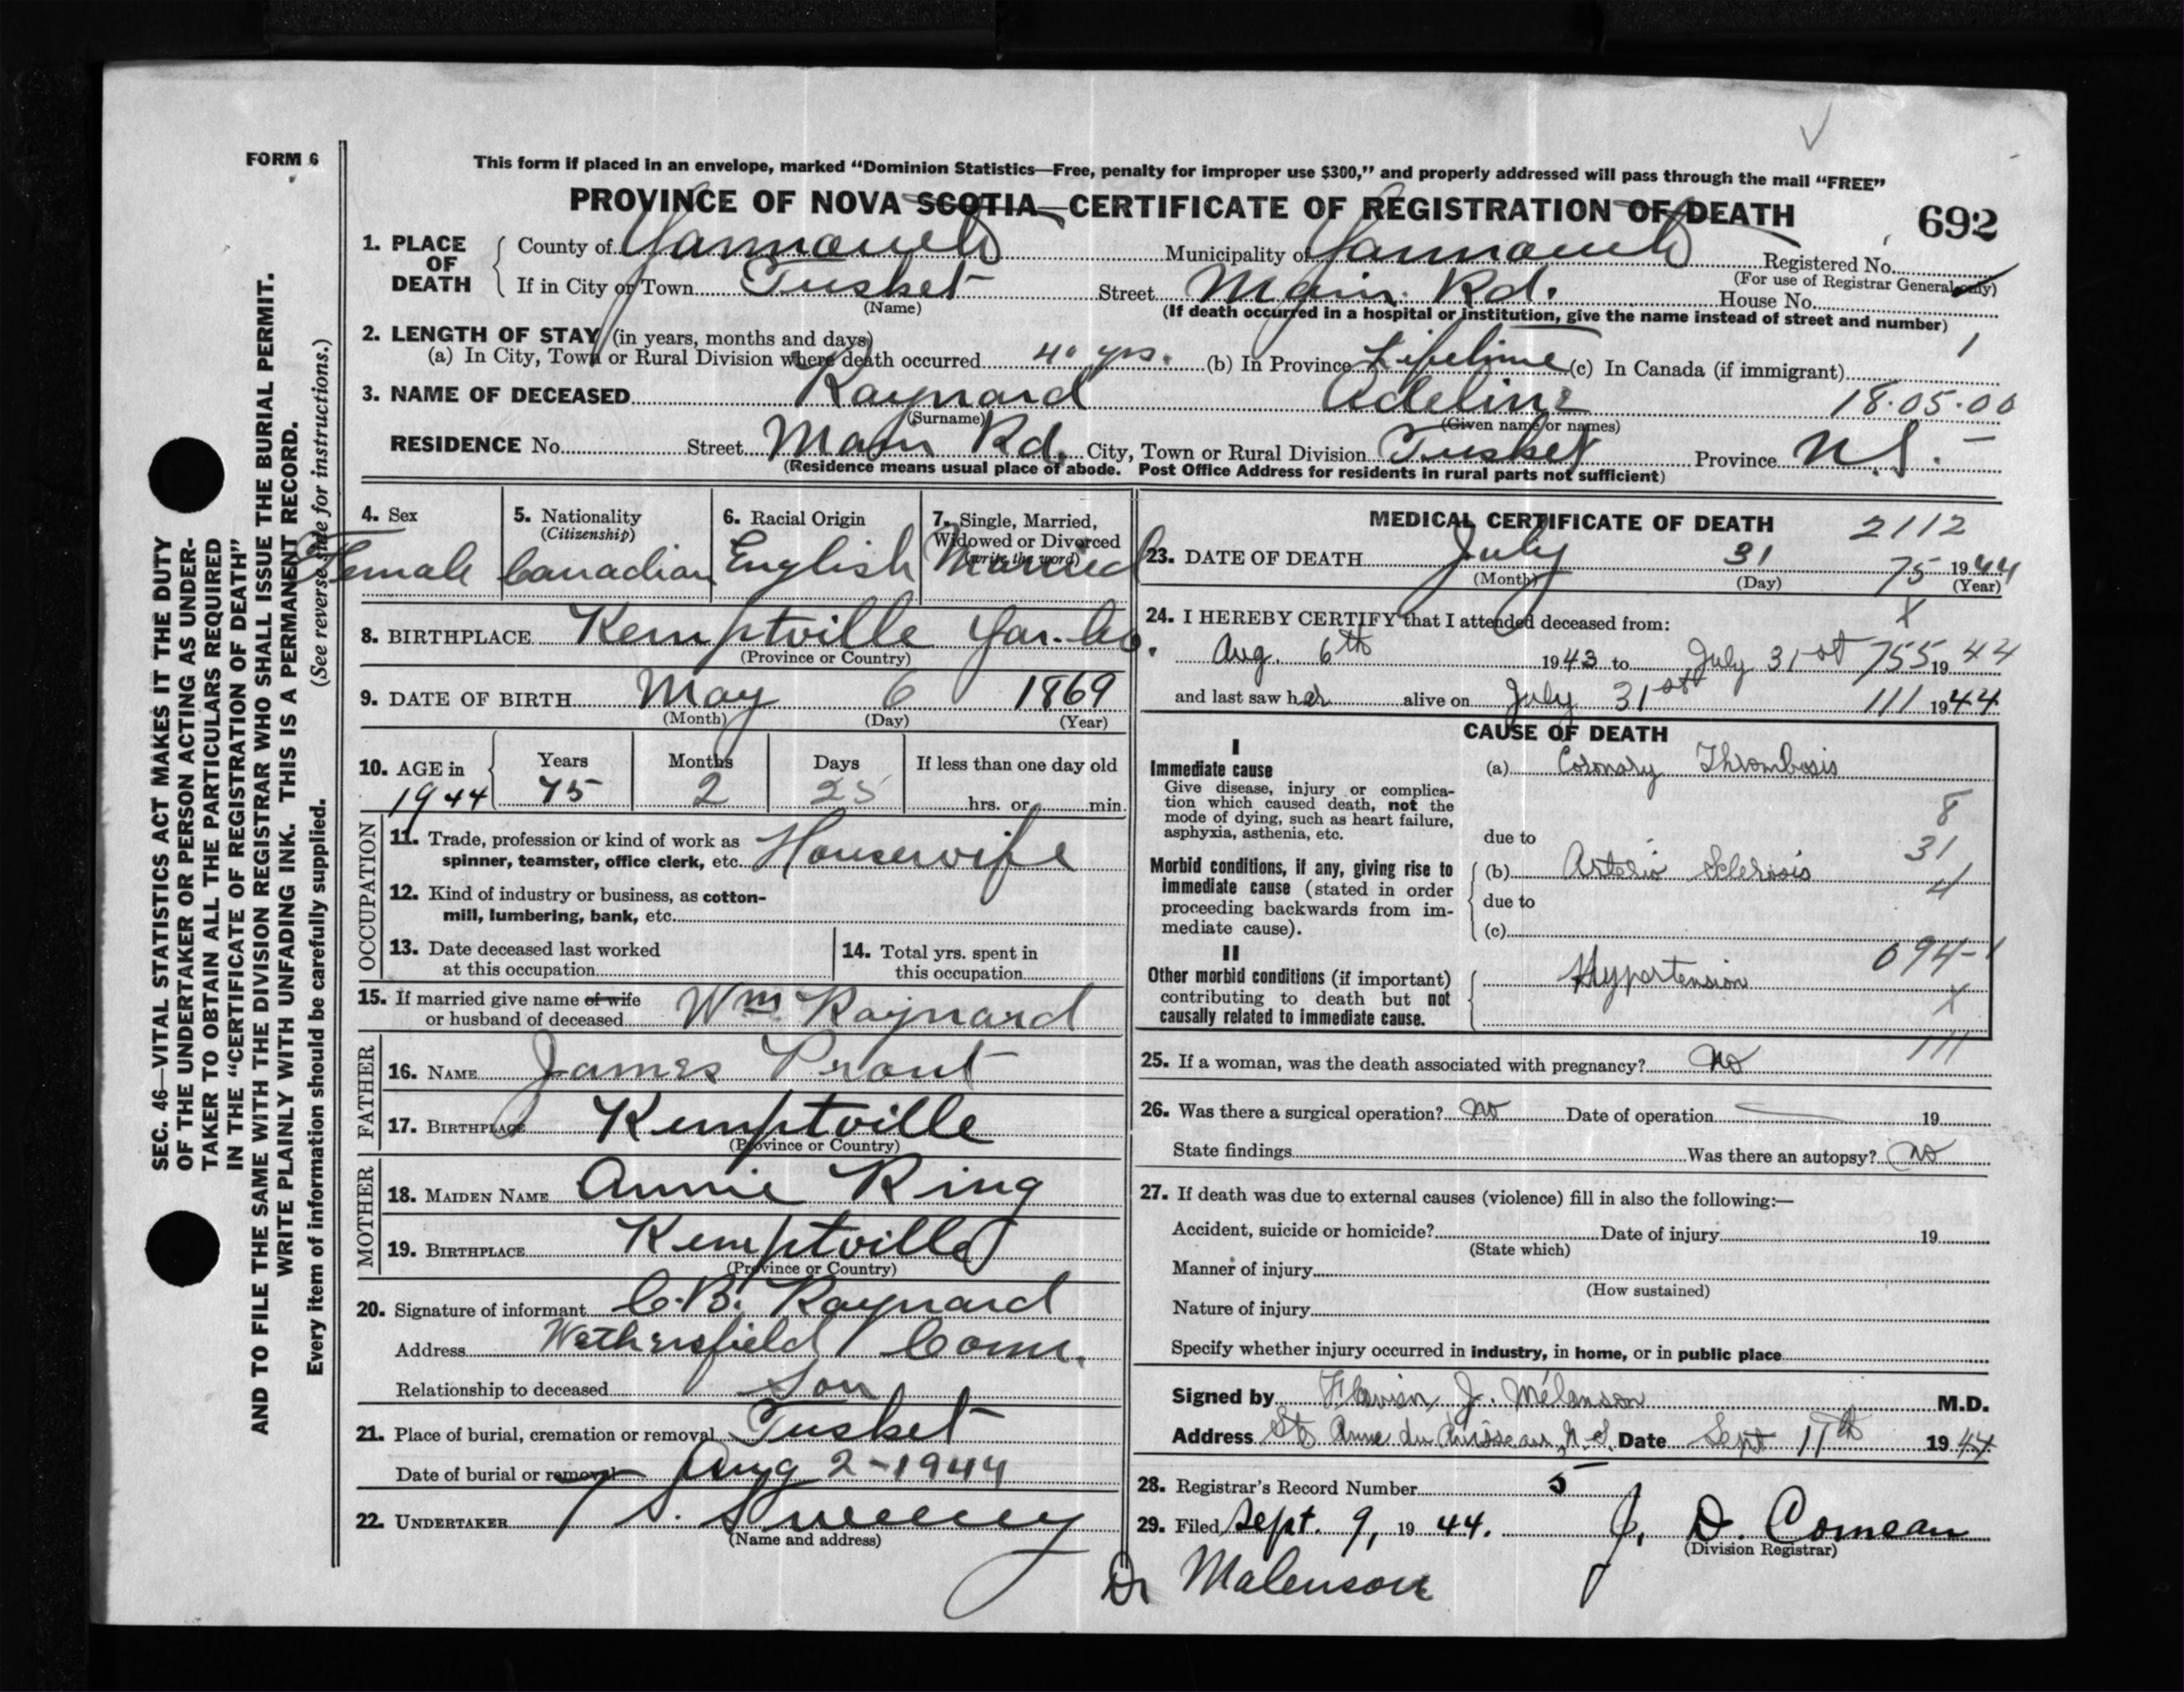 FORM 6
This form if placed in an envelope, marked “Dominion Statistics—Free, penalty for improper use $300,” and properly addressed will pass through the mail “FREE”
PROVINCE OF NOVA SCOTIA—CERTIFICATE OF REGISTRATION OF DEATH
692
1. PLACE OF DEATH
County of Yarmouth Municipality of Yarmouth Registered No.
(For use of Registrar General only)
If in City or Town Tusket Street Main Rd. House No.
(Name)
(If death occurred in a hospital or institution, give the name instead of street and number)
2. LENGTH OF STAY (in years, months and days)
(a) In City, Town or Rural Division where death occurred 40 yrs. (b) In Province Lifetime (c) In Canada (if immigrant) 1
3. NAME OF DECEASED Raynard Adeline 18.05.00
(Surname) (Given name or names)
RESIDENCE No. Street Main Rd. City, Town or Rural Division Tusket Province N.S. –
(Residence means usual place of abode. Post Office Address for residents in rural parts not sufficient)
4. Sex
Female
5. Nationality
(Citizenship)
Canadian
6. Racial Origin
English
7. Single, Married, Widowed or Divorced
(write the word)
Married
8. BIRTHPLACE Kemptville Yar. Co.
(Province or Country)
9. DATE OF BIRTH May 6 1869
(Month) (Day) (Year)
10. AGE in 1944
Years 75
Months 2
Days 25
If less than one day old
hrs. or min.
OCCUPATION
11. Trade, profession or kind of work as
spinner, teamster, office clerk, etc. Housewife
12. Kind of industry or business, as cotton-
mill, lumbering, bank, etc.
13. Date deceased last worked
at this occupation
14. Total yrs. spent in
this occupation
15. If married give name of wife
or husband of deceased Wm. Raynard
FATHER
16. NAME James Prout
17. BIRTHPLACE Kemptville
(Province or Country)
MOTHER
18. MAIDEN NAME Annie Ring
19. BIRTHPLACE Kemptville
(Province or Country)
20. Signature of informant C.B. Raynard
Address Wethersfield Conn.
Relationship to deceased Son
21. Place of burial, cremation or removal Tusket
Date of burial or removal Aug 2-1944
22. UNDERTAKER S. Sweeny
(Name and address)
MEDICAL CERTIFICATE OF DEATH 2112
23. DATE OF DEATH July 31 75 1944
(Month) (Day) (Year)
24. I HEREBY CERTIFY that I attended deceased from: X
Aug. 6th 1943 to July 31st 755 1944
and last saw her alive on July 31st 111 1944
CAUSE OF DEATH
I
Immediate cause
Give disease, injury or complica-
tion which caused death, not the
mode of dying, such as heart failure,
asphyxia, asthenia, etc.
(a) Coronary Thrombosis
8
due to
31
Morbid conditions, if any, giving rise to
immediate cause (stated in order
proceeding backwards from im-
mediate cause).
(b) Arterio Sclerosis
4
due to
(c)
II
Other morbid conditions (if important)
contributing to death but not
causally related to immediate cause.
094-1
Hypertension
X
111
25. If a woman, was the death associated with pregnancy? No
26. Was there a surgical operation? No Date of operation 19
State findings Was there an autopsy? No
27. If death was due to external causes (violence) fill in also the following:—
Accident, suicide or homicide? Date of injury 19
(State which)
Manner of injury
(How sustained)
Nature of injury
Specify whether injury occurred in industry, in home, or in public place
Signed by Flavien J. Mélanson M.D.
Address Ste Anne du Ruisseau, N.S. Date Sept 11th 1944
28. Registrar's Record Number 5
29. Filed Sept. 9, 1944. J. D. Comeau
(Division Registrar)
Dr Malenson
SEC. 46—VITAL STATISTICS ACT MAKES IT THE DUTY
OF THE UNDERTAKER OR PERSON ACTING AS UNDER-
TAKER TO OBTAIN ALL THE PARTICULARS REQUIRED
IN THE “CERTIFICATE OF REGISTRATION OF DEATH”
AND TO FILE THE SAME WITH THE DIVISION REGISTRAR WHO SHALL ISSUE THE BURIAL PERMIT.
WRITE PLAINLY WITH UNFADING INK. THIS IS A PERMANENT RECORD.
Every item of information should be carefully supplied. (See reverse side for instructions.)